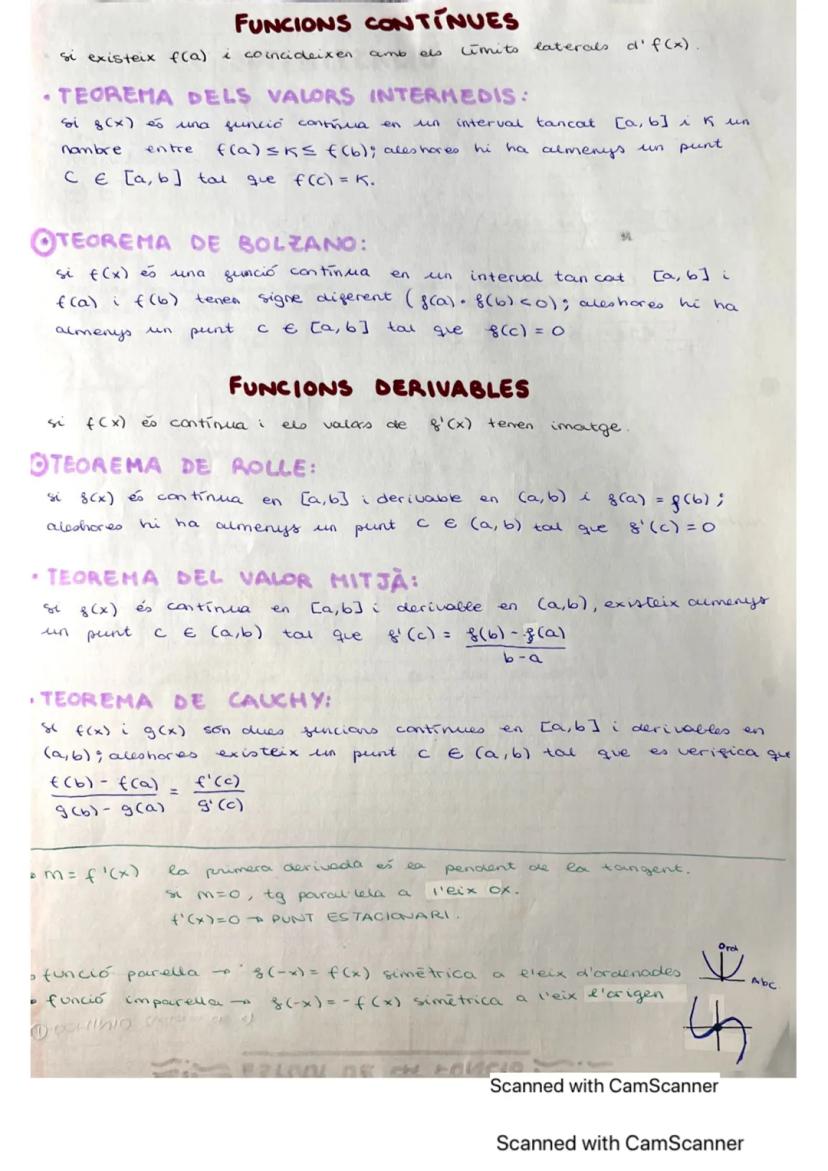 FUNCIONS CONTÍNUES
si existeix f(a) i coincideixen amb els límits laterals d'f(x).
• TEOREMA DELS VALORS INTERMEDIS:
Si f(x) és una funció contínua en un interval tancat [a,b] i K un
nombre entre f(a) ≤ K ≤ f(b); aleshores hi ha almenys un punt
C ∈ [a,b] tal que f(c) = K.
TEOREMA DE BOLZANO:
si f(x) és una funció contínua en un interval tancat [a,b] i
f(a) i f(b) tenen signe diferent (f(a)·f(b)<0); aleshores hi ha
almenys un punt c ∈ [a,b] tal que f(c) = 0
FUNCIONS DERIVABLES
si f(x) és contínua i els valors de f'(x) tenen imatge.
TEOREMA DE ROLLE:
si f(x) és contínua en [a,b] i derivable en (a,b) i f(a) = f(b);
aleshores hi ha almenys un punt c ∈ (a,b) tal que f'(c) = 0
• TEOREMA DEL VALOR MITJÀ:
si f(x) és contínua en [a,b] i derivable en (a,b), existeix almenys
un punt c ∈ (a,b) tal que f'(c) = f(b) - f(a)
b-a
• TEOREMA DE CAUCHY:
Si f(x) i g(x) són dues funcions contínues en [a,b] i derivables en
(a,b); aleshores existeix un punt c ∈ (a,b) tal que es verifica que
f(b) - f(a) = f'(c)
g(b) - g(a) g'(c)
• m = f'(x) la primera derivada és la pendent de la tangent.
si m=0, tg paral·lela a l'eix OX.
f'(x)=0 → PUNT ESTACIONARI.
• funció parella → f(-x) = f(x) simètrica a l'eix d'ordenades
Ord
Abc
• funció imparella → f(-x) = -f(x) simètrica a l'eix l'origen
Scanned with CamScanner
Scanned with CamScanner